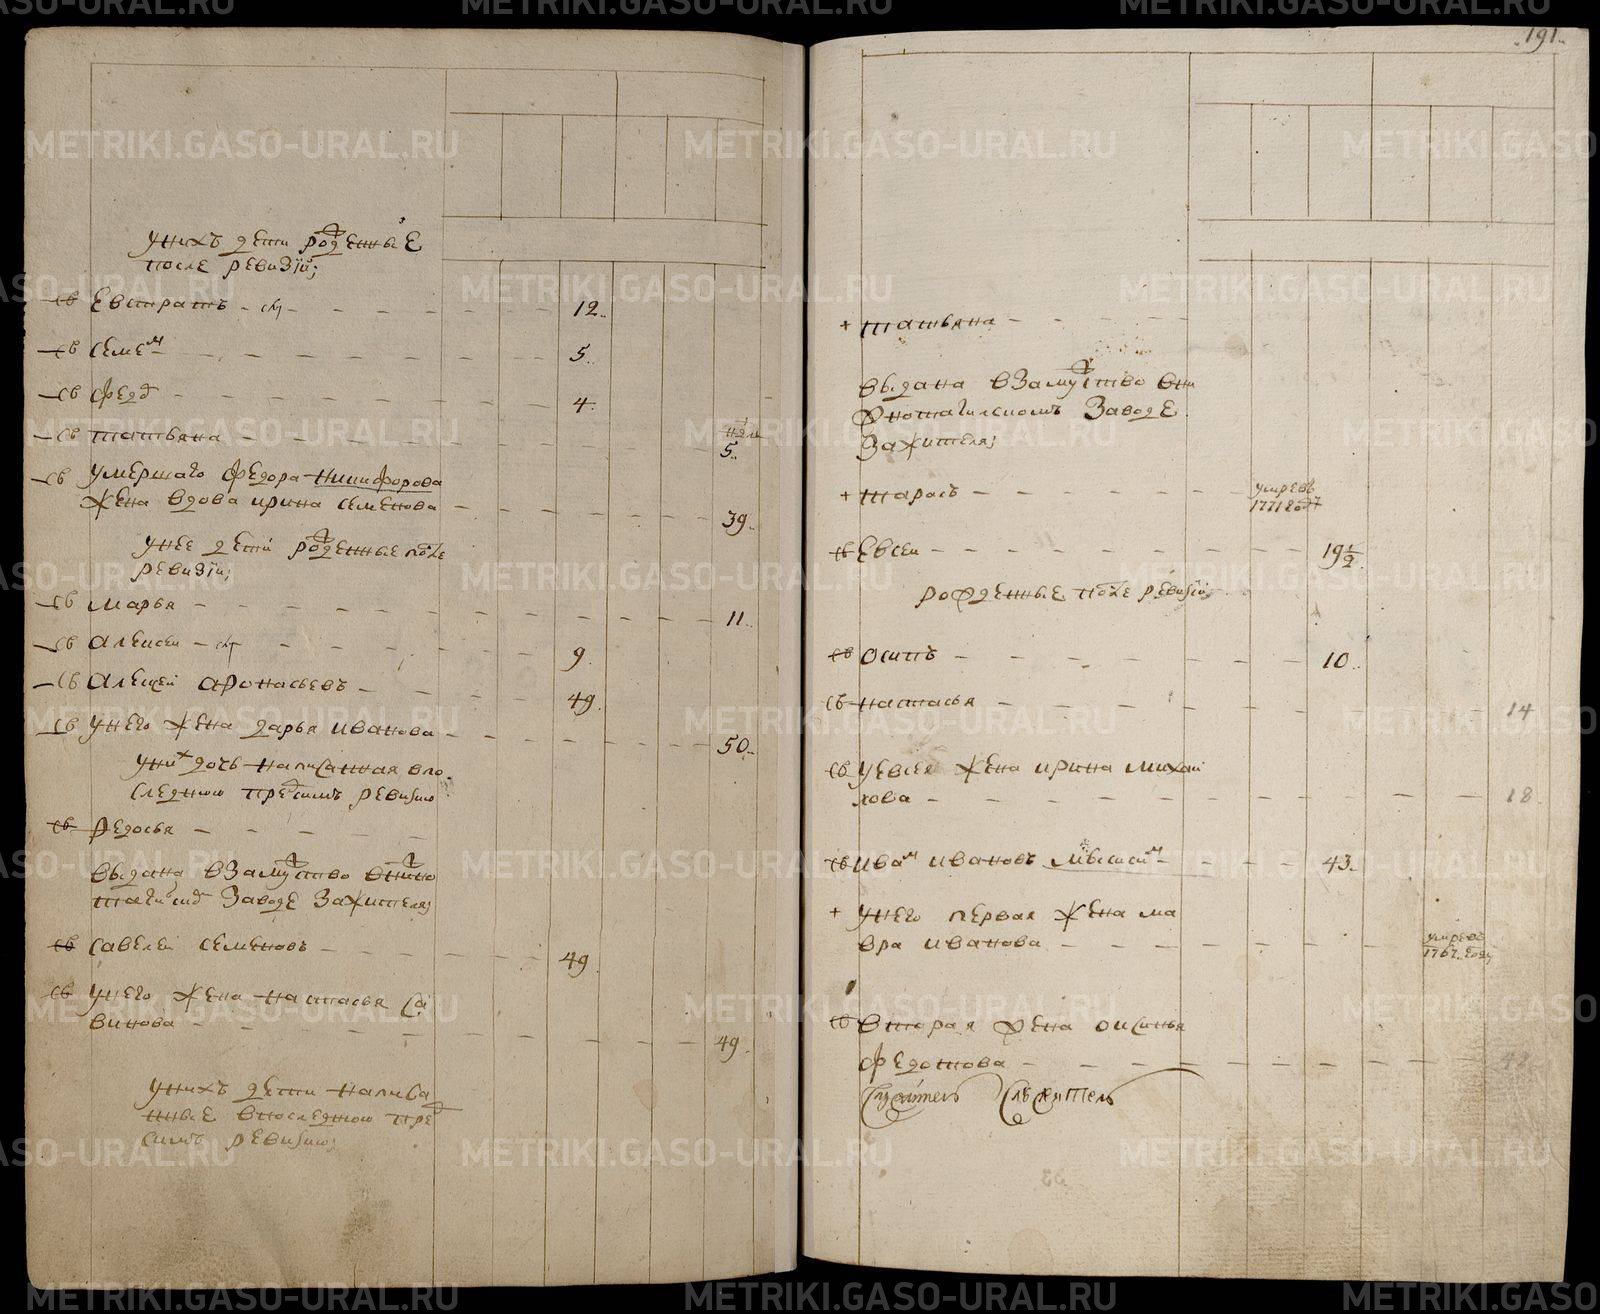 унихъ дети рожденные
после ревизии;
св Евстратъ 12.
св Семен 5.
св Федор 4.
св татьяна 5.
св умершаго федора никифорова
жена вдова ирина семенова 39.
унее дети рожденные после
ревизии;
св марья 11.
св алексеи 9.
св алексей афонасьевъ 49.
св унего жена дарья иванова 50.
уних дочь написанная впо
следнюю предсимъ ревизию
св федосья
выдана взамужство внижно
тагилской Заводе Зажителя;
св савелеи семеновъ 49
св унего жена настасья са
винова 49.
унихъ дети написа
нные впоследнюю пред
симъ ревизию;
191.
+ татьяна
выдана взамужство вни
жнотагилскомъ Заводе
Зажителя;
+ тарасъ умре въ
1771 году
св Евсеи 19½
рожденные после ревизии;
св осипъ 10.
св настасья 14
св уевсея жена ирина михаи
лова 18.
св иван ивановъ 43.
+ унего первая жена ма
вра иванова умре въ
1767. году
св вторая жена оксинья
федотова
Служитель
METRIKI.GASO-URAL.RU